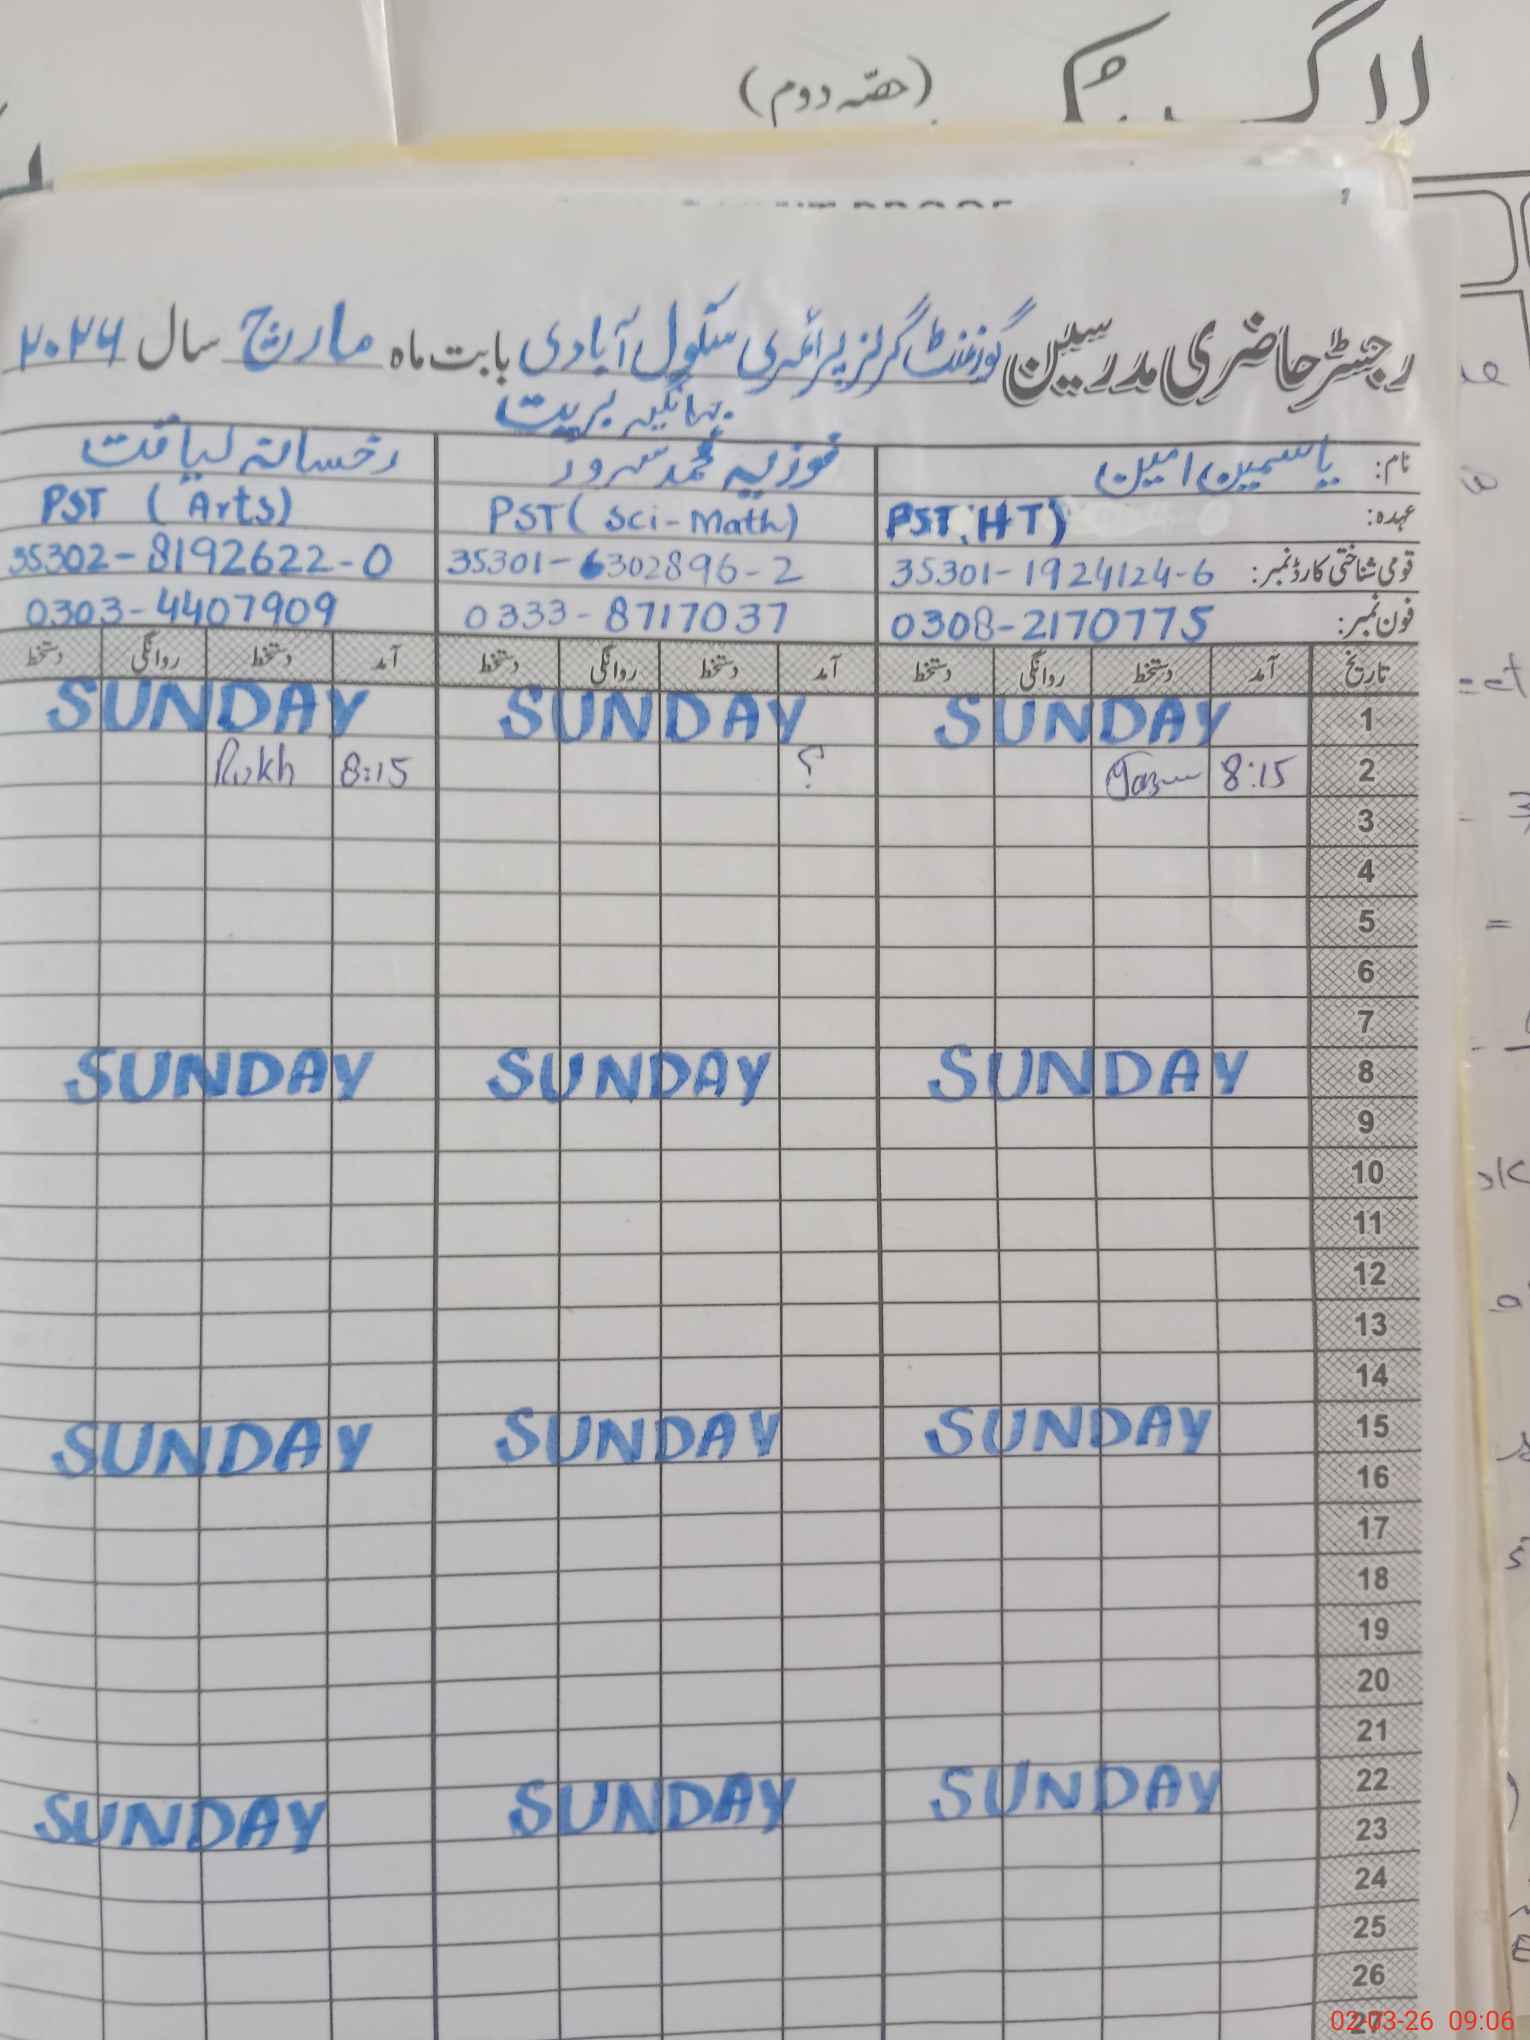 لاگ
(حصّہ دوم)
رجسٹر حاضری مدرسین گورنمنٹ گرلز پرائمری سکول آبادی بابت ماہ مارچ سال ۲۰۲۶
بریت
نام: یاسمین امین فوزیہ محمد سرور رخسانہ لیاقت
عہدہ: PST (HT) PST (Sci-Math) PST (Arts)
قومی شناختی کارڈ نمبر: 35301-1924124-6 35301-6302896-2 35302-8192622-0
فون نمبر: 0308-2170775 0333-8717037 0303-4407909
تاریخ آمد دستخط روانگی دستخط آمد دستخط روانگی دستخط آمد دستخط روانگی دستخط
1 SUNDAY SUNDAY SUNDAY
2 8:15 ؟ 8:15 Rukh
3
4
5
6
7
8 SUNDAY SUNDAY SUNDAY
9
10
11
12
13
14
15 SUNDAY SUNDAY SUNDAY
16
17
18
19
20
21
22 SUNDAY SUNDAY SUNDAY
23
24
25
26
27
02-03-26 09:06